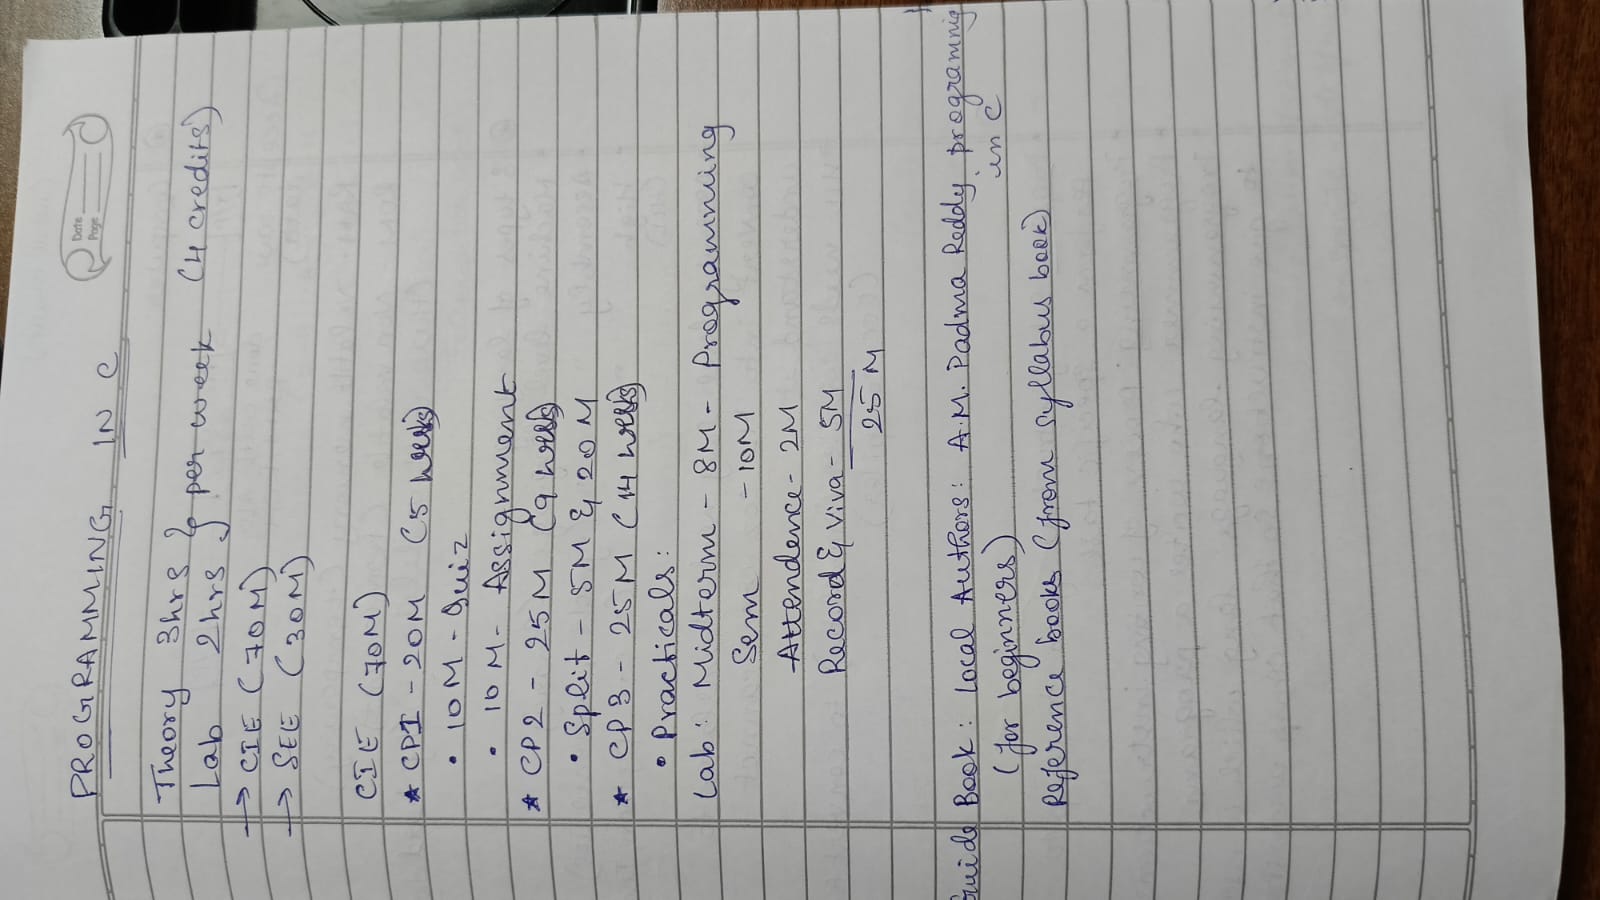 PROGRAMMING IN C
Date
Page
Theory 3hrs } per week (4 credits)
Lab 2hrs
→ CIE (70M)
→ SEE (30M)
CIE (70M)
★ CP1 - 20M (5 weeks)
• 10M - Quiz
• 10M - Assignment
★ CP2 - 25M (9 weeks)
• Split - 5M & 20M
★ CP3 - 25M (14 weeks)
• Practicals:
Lab: Midterm - 8M - Programming
Sem - 10M
Attendence - 2M
Record & Viva - 5M
25M
Guide Book: Local Authors: A.M. Padma Reddy programmig
in C
(for beginners)
Reference books (from syllabus book)